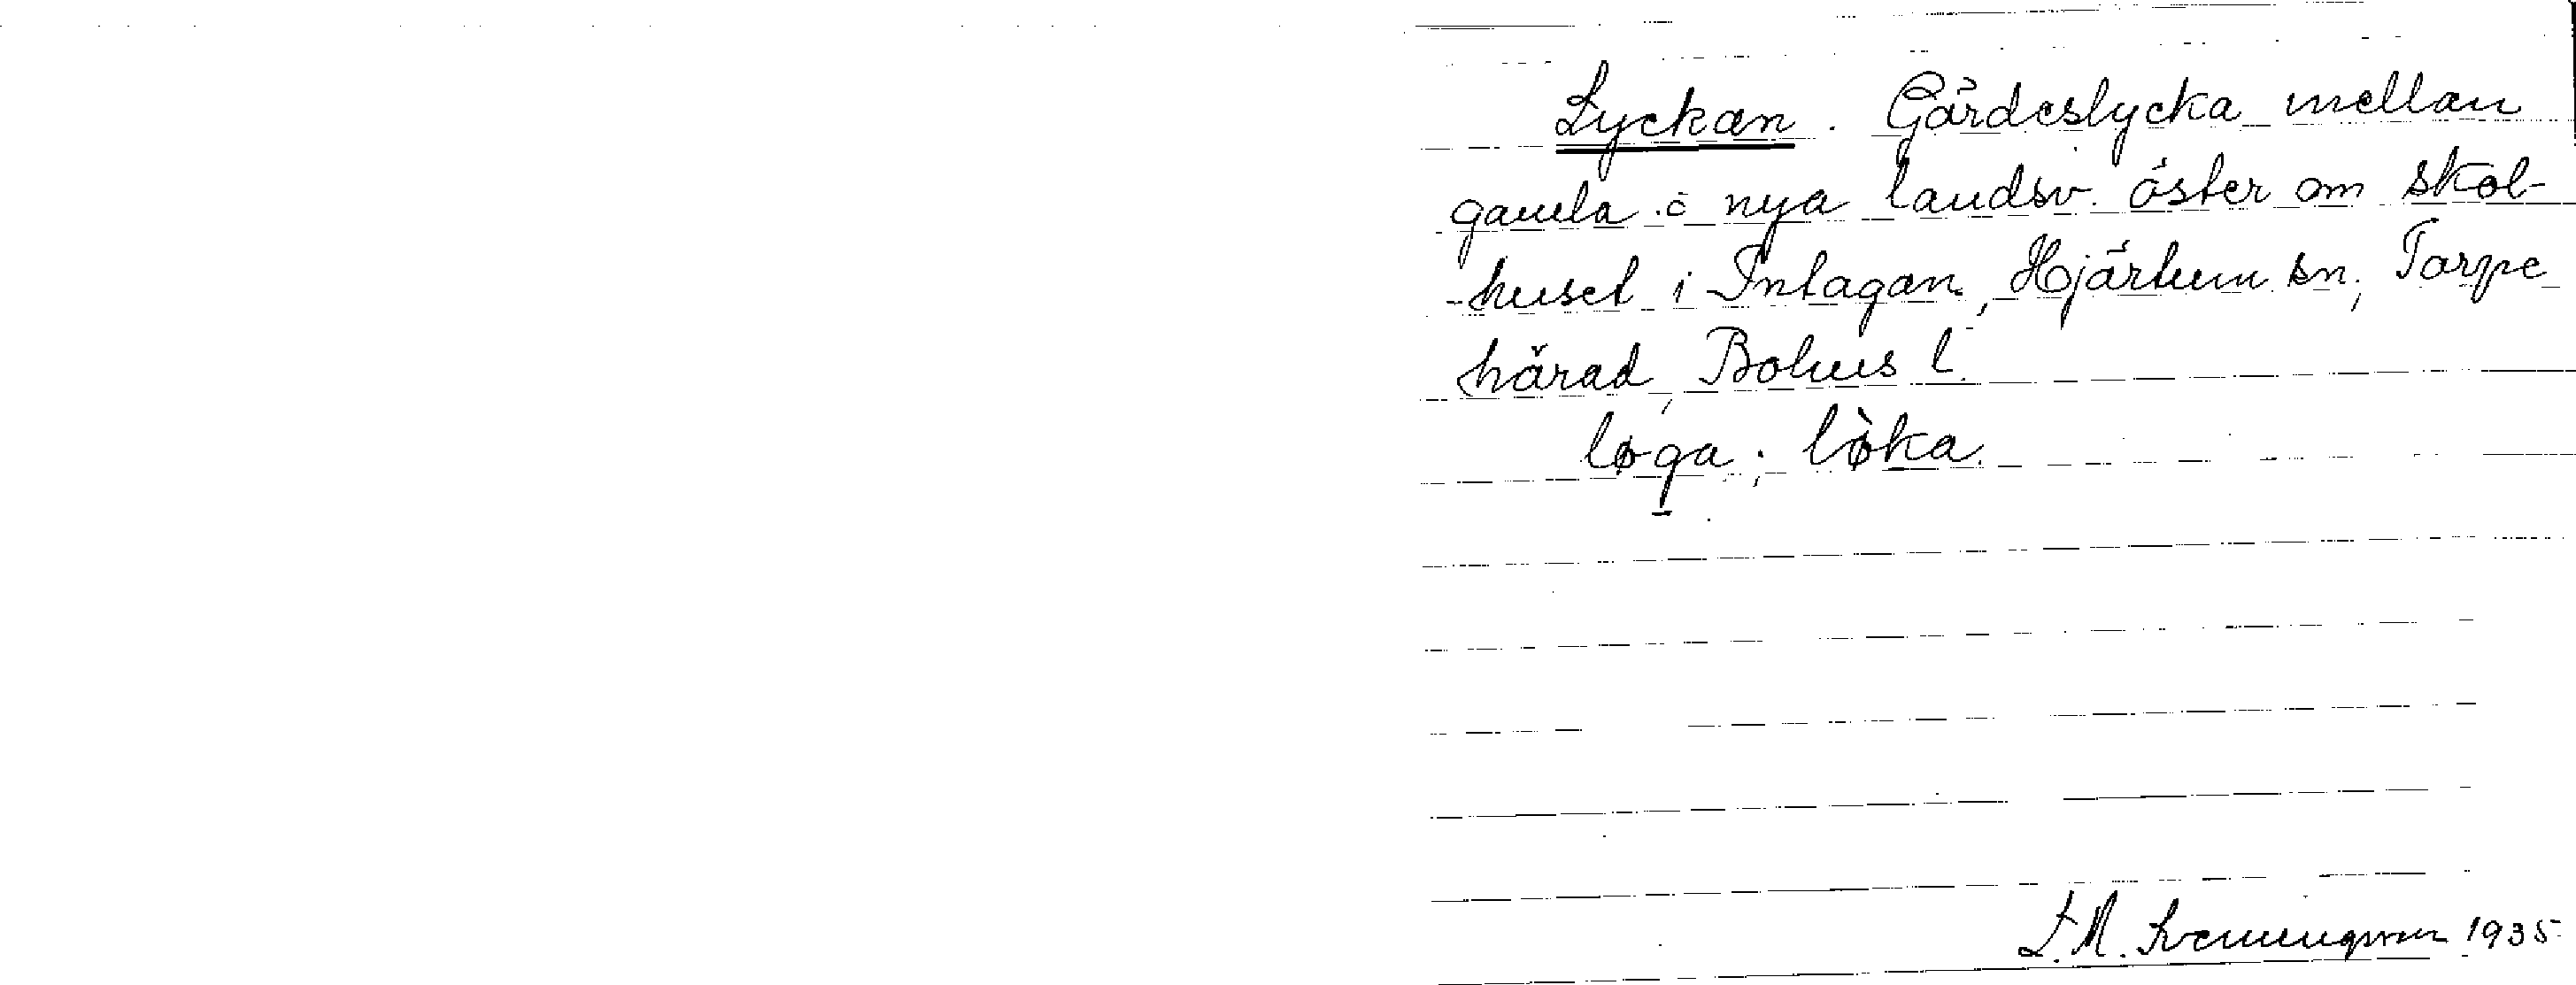 Lyckan. Gärdeslycka mellan
gamla o nya landsv. öster om skol-
-huset i Intagan, Hjärtum sn; Torpe
härad, Bohus l.
løga; lø̀ka.
L. M. 1935